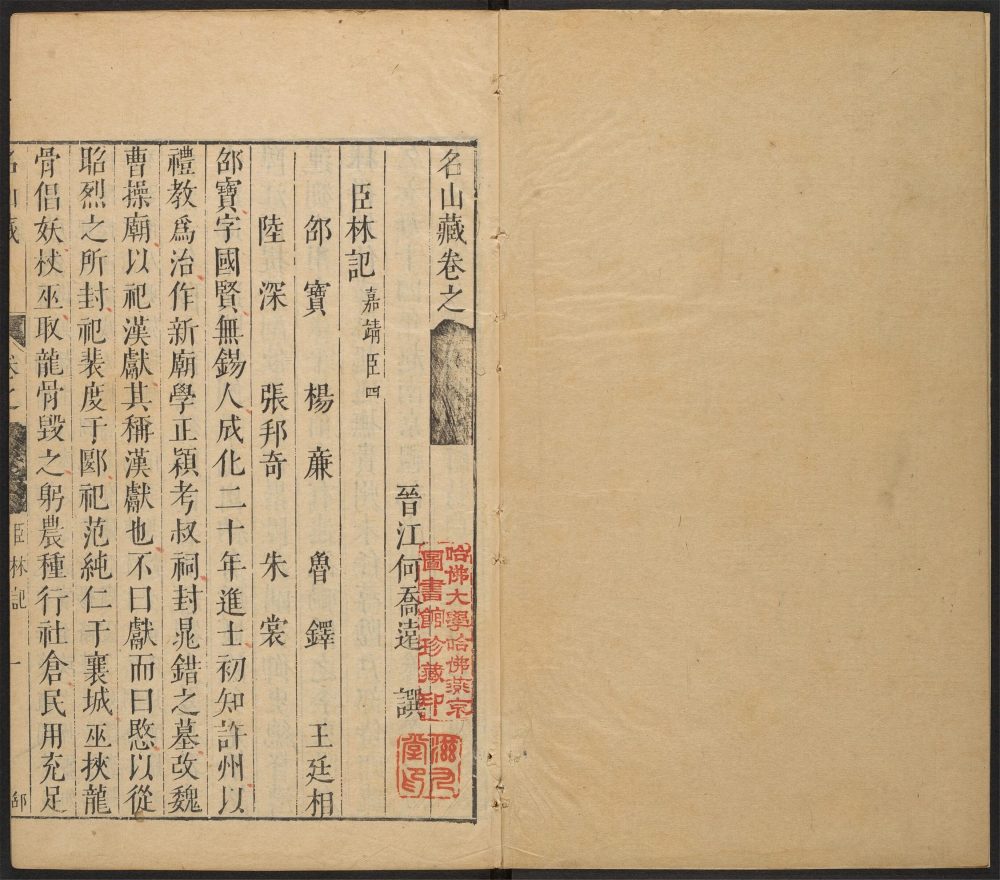 名山藏卷之
晉江何喬遠 譔
臣林記 嘉靖臣四
邵寶 楊廉 魯鐸 王廷相
陸深 張邦奇 朱裳
邵寶字國賢無錫人成化二十年進士初知許州以
禮教爲治作新廟學正潁考叔祠封晁錯之墓改魏
曹操廟以祀漢獻其稱漢獻也不曰獻而曰愍以從
昭烈之所封祀裴度于郾祀范純仁于襄城巫挾龍
骨倡妖杖巫取龍骨毀之躬農種行社倉民用充足
名山藏 卷之 臣林記 一 邵
哈佛大學哈佛燕京
圖書館珍藏印